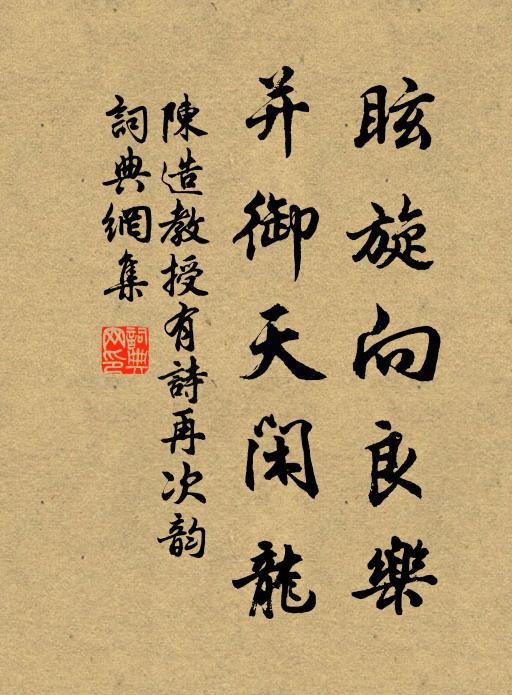 眩旋向良樂
并御天閑龍
陳造教授有詩再次韵
詞典網集
詞典网印